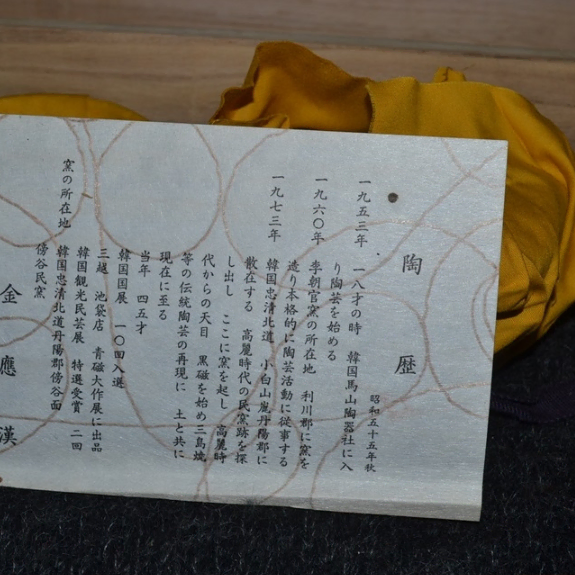 陶歴
昭和五十五年秋
一九五三年 一八才の時 韓国馬山陶器社に入
り陶芸を始める
一九六〇年 李朝官窯の所在地 利川郡に窯を
造り本格的に陶芸活動に従事する
一九七三年 韓国忠清北道 小白山嶌丹陽郡に
散在する 高麗時代の民窯跡を探
し出し ここに窯を起し 高麗時
代からの天目 黒磁を始め三島焼
等の伝統陶芸の再現に 土と共に
現在に至る
当年 四五才
韓国国展 一〇回入選
三越 池袋店 青磁大作展に出品
韓国観光民芸展 特選受賞 二回
窯の所在地 韓国忠清北道丹陽郡傍谷面
傍谷民窯
金應漢